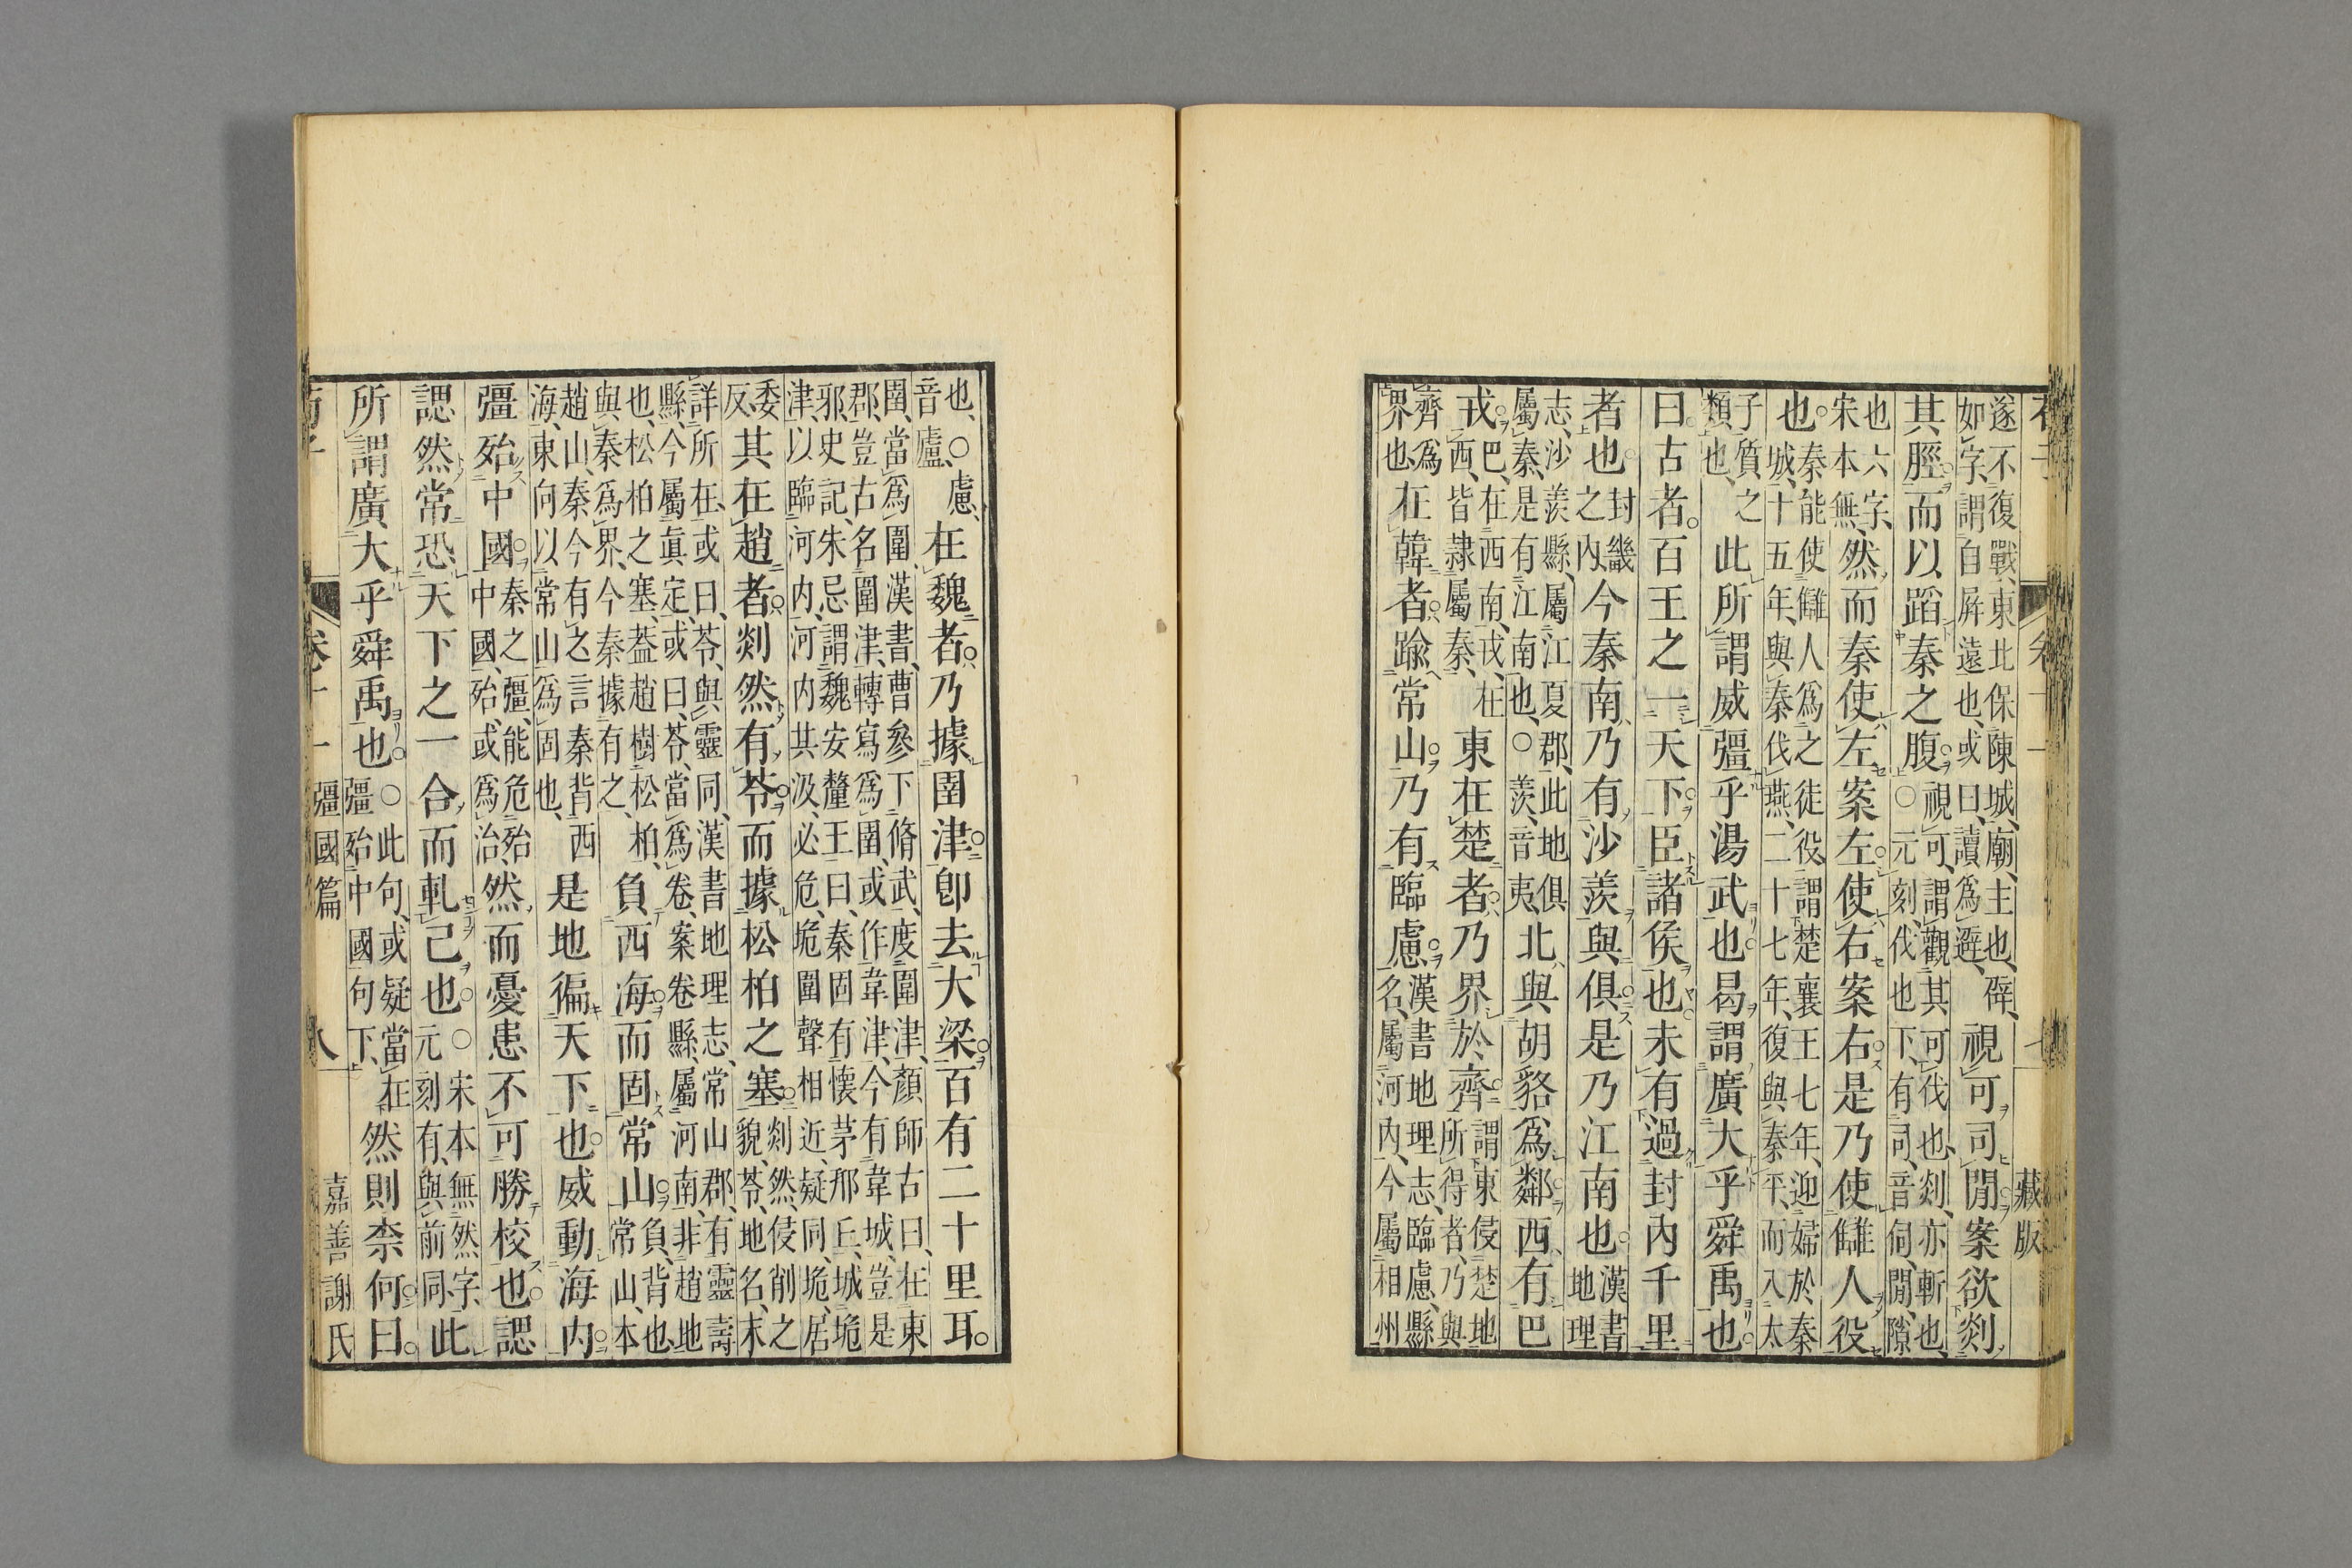 藏版
遂不復戰、東北保陳城、廟主也、辟、如字、謂自屏遠也、或曰、讀爲避、視可司閒案欲剡
其脛而以蹈秦之腹視可、謂觀其可伐也、剡、亦斬也、○元刻伐也下、有司、音伺、閒、隙
也六字、宋本無、然而秦使左案左使右案右是乃使讎人役
也。秦能使讎人爲之徒役、謂楚襄王七年、迎婦於秦城、十五年、與秦伐燕、二十七年、復與秦平、而入太
子質之類也、此所謂威彊乎湯武也曷謂廣大乎舜禹也
曰古者百王之一天下臣諸侯也未有過封內千里
者也封畿之內、今秦南乃有沙羨與俱是乃江南也漢書地理
志、沙羨縣、屬江夏郡、此地俱屬秦、是有江南也、○羨、音夷、北與胡貉爲鄰西有巴
戎巴、在西南、戎、在西、皆隸屬秦、東在楚者乃界於齊謂東侵楚地所得者、乃與
齊爲界也、在韓者踰常山乃有臨慮漢書地理志、臨慮、縣名、屬河內、今屬相州
也、○慮、音廬、在魏者乃據圉津卽去大梁百有二十里耳
圉、當爲圍、漢書、曹參下脩武、度圍津、顏師古曰、在東郡、豈古名圍津、轉寫爲圉、或作韋津、今有韋城、豈是
邪、史記、朱忌謂魏安釐王曰、秦固有懷茅邢丘、城垝津、以臨河內、河內共汲、必危、垝圍聲相近、疑同、垝、居
委反、其在趙者剡然有苓而據松柏之塞剡然、侵削之貌、苓、地名、未
詳所在、或曰、苓與靈同、漢書地理志、常山郡有靈壽縣、今屬眞定、或曰、苓、當爲卷、案卷縣、屬河南、非趙地
也、松柏之塞、葢趙樹松柏與秦爲界、今秦據有之、負西海而固常山負、背也、常山、本
趙山、秦今有之、言秦背西海、東向以常山爲固也、是地徧天下也威動海內
彊殆中國秦之彊、能危殆中國、殆、或爲治、然而憂患不可勝校也諰
諰然常恐天下之一合而軋己也○宋本無然字、元刻有、與前同、此
所謂廣大乎舜禹也○此句、或疑當在彊殆中國句下、然則柰何曰
卷十一 彊國篇 八 嘉善謝氏